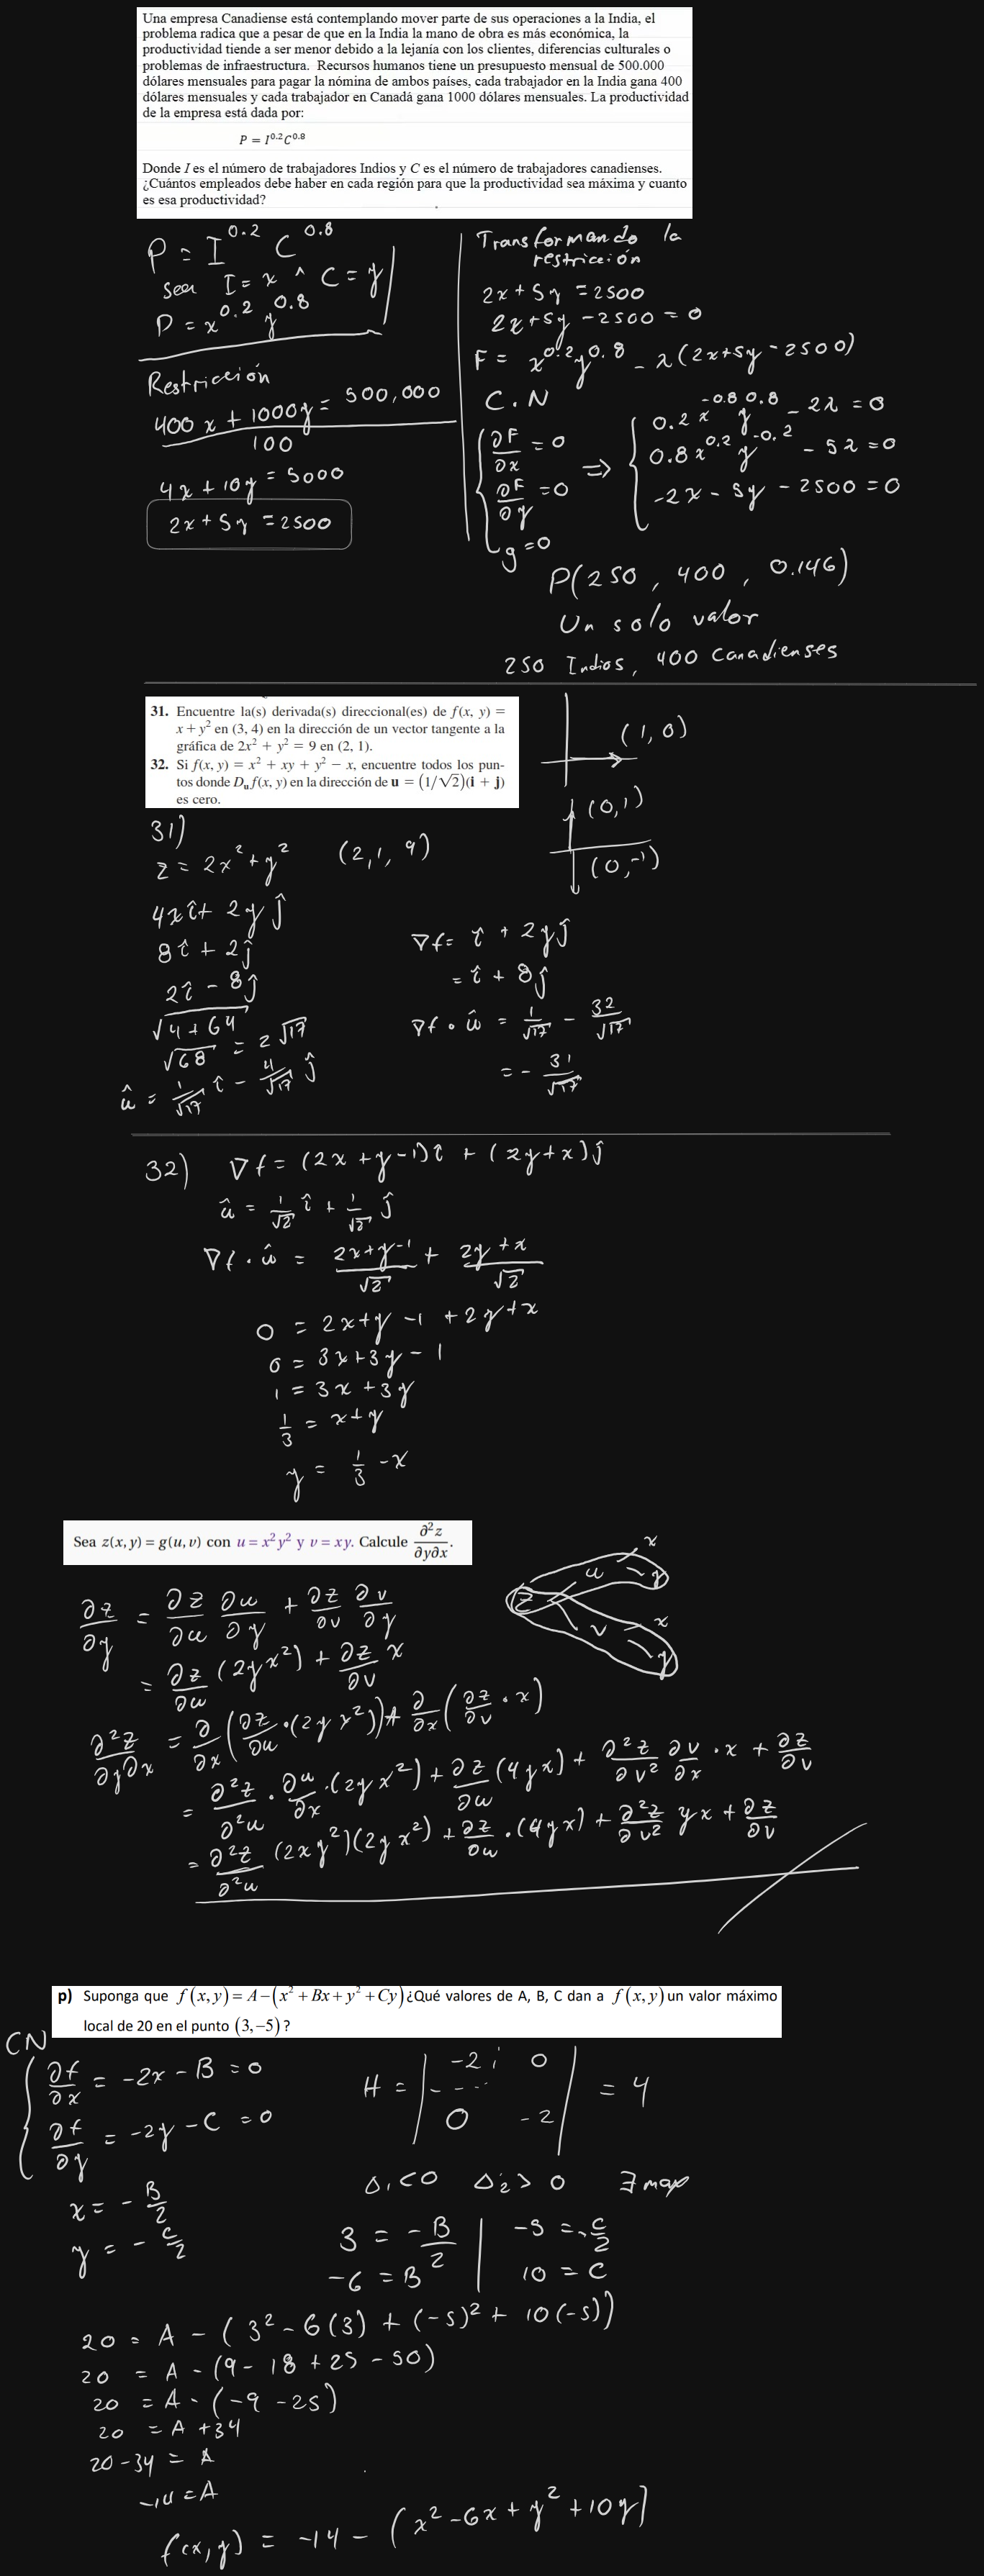 Una empresa Canadiense está contemplando mover parte de sus operaciones a la India, el
problema radica que a pesar de que en la India la mano de obra es más económica, la
productividad tiende a ser menor debido a la lejanía con los clientes, diferencias culturales o
problemas de infraestructura. Recursos humanos tiene un presupuesto mensual de 500.000
dólares mensuales para pagar la nómina de ambos países, cada trabajador en la India gana 400
dólares mensuales y cada trabajador en Canadá gana 1000 dólares mensuales. La productividad
de la empresa está dada por:
P = I^0.2 C^0.8
Donde I es el número de trabajadores Indios y C es el número de trabajadores canadienses.
¿Cuántos empleados debe haber en cada región para que la productividad sea máxima y cuanto
es esa productividad?
P = I^0.2 C^0.8
sea I = x ^ C = y
P = x^0.2 y^0.8
Restricción
400x + 1000y = 500,000
100
4x + 10y = 5000
2x + 5y = 2500
Transformando la
restricción
2x + 5y = 2500
2x + 5y - 2500 = 0
F = x^0.2 y^0.8 - λ(2x+5y-2500)
C.N
∂F/∂x = 0
∂F/∂y = 0
g = 0
⇒ 0.2x^-0.8 y^0.8 - 2λ = 0
0.8x^0.2 y^-0.2 - 5λ = 0
-2x - 5y - 2500 = 0
P(250, 400, 0.146)
Un solo valor
250 Indios, 400 Canadienses
31. Encuentre la(s) derivada(s) direccional(es) de f(x, y) =
x + y² en (3, 4) en la dirección de un vector tangente a la
gráfica de 2x² + y² = 9 en (2, 1).
32. Si f(x, y) = x² + xy + y² − x, encuentre todos los pun-
tos donde D_u f(x, y) en la dirección de u = (1/√2)(i + j)
es cero.
(1, 0)
(0, 1)
(0, -1)
31)
z = 2x² + y² (2, 1, 9)
4xî + 2yĵ
8î + 2ĵ
2î - 8ĵ
√4+64
√68 = 2√17
û = 1/√17 î - 4/√17 ĵ
∇f = î + 2yĵ
= î + 8ĵ
∇f · û = 1/√17 - 32/√17
= - 31/√17
32) ∇f = (2x + y - 1)î + (2y + x)ĵ
û = 1/√2 î + 1/√2 ĵ
∇f · û = (2x+y-1)/√2 + (2y+x)/√2
0 = 2x+y-1+2y+x
0 = 3x+3y-1
1 = 3x+3y
1/3 = x+y
y = 1/3 - x
Sea z(x, y) = g(u, v) con u = x²y² y v = xy. Calcule ∂²z/∂y∂x.
z u x y
v x y
∂z/∂y = ∂z/∂u ∂u/∂y + ∂z/∂v ∂v/∂y
= ∂z/∂u (2yx²) + ∂z/∂v x
∂²z/∂y∂x = ∂/∂x (∂z/∂u · (2yx²)) + ∂/∂x (∂z/∂v · x)
= ∂²z/∂²u · ∂u/∂x · (2yx²) + ∂z/∂u (4yx) + ∂²z/∂v² ∂v/∂x · x + ∂z/∂v
= ∂²z/∂²u (2xy²)(2yx²) + ∂z/∂u · (4yx) + ∂²z/∂v² yx + ∂z/∂v
p) Suponga que f(x, y) = A−(x² + Bx + y² + Cy) ¿Qué valores de A, B, C dan a f(x, y) un valor máximo
local de 20 en el punto (3,−5)?
CN
∂f/∂x = -2x - B = 0
∂f/∂y = -2y - C = 0
x = - B/2
y = - C/2
H = | -2 0
0 -2 | = 4
Δ₁<0 Δ₂>0 ∃ max
3 = - B/2
-6 = B
-5 = - C/2
10 = C
20 = A - (3² - 6(3) + (-5)² + 10(-5))
20 = A - (9 - 18 + 25 - 50)
20 = A - (-9 - 25)
20 = A + 34
20 - 34 = A
-14 = A
f(x,y) = -14 - (x² - 6x + y² + 10y)